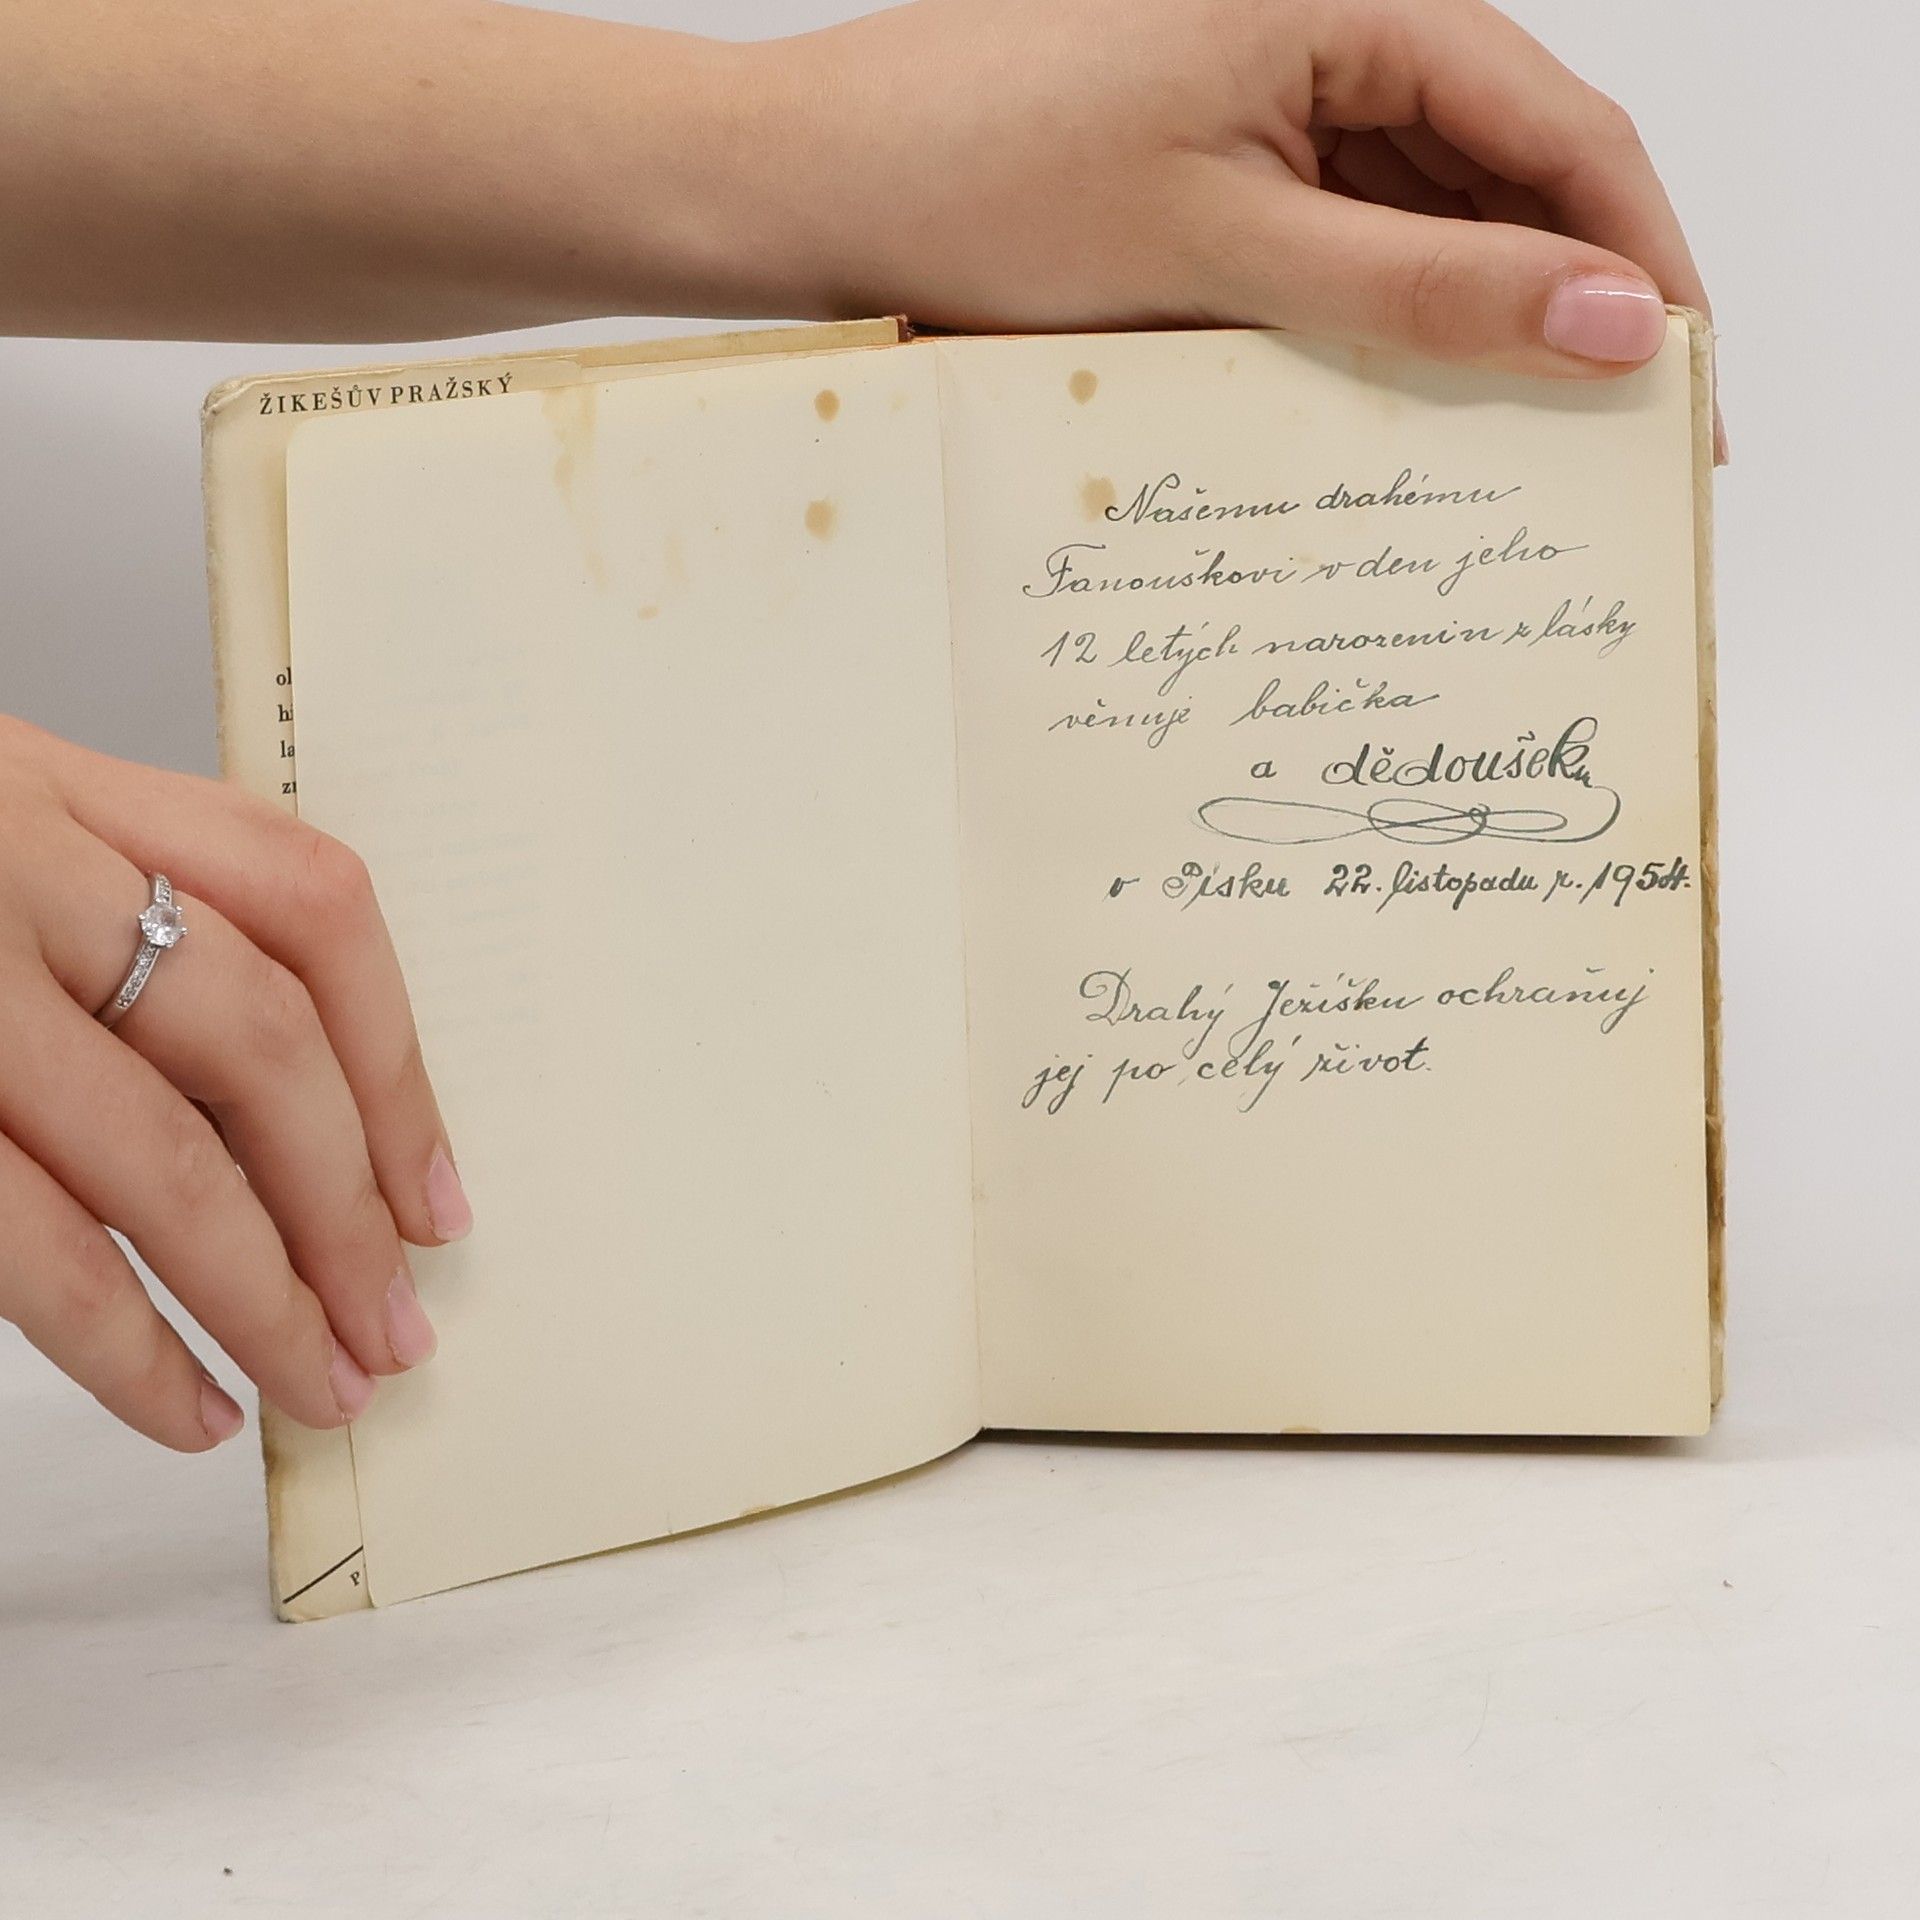 ŽIKEŠŮV PRAŽSKÝ
Našemu drahému
Fanouškovi v den jeho
12 letých narozenin z lásky
věnuje babička
a dědoušek
v Písku 22. listopadu r. 1954.
Drahý Ježíšku ochraňuj
jej po celý život.